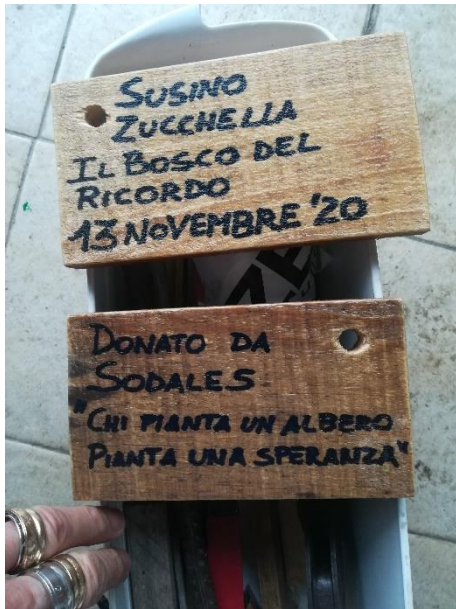 SUSINO
ZUCCHELLA
IL BOSCO DEL
RICORDO
13 NOVEMBRE '20
DONATO DA
SODALES
"CHI PIANTA UN ALBERO
PIANTA UNA SPERANZA"